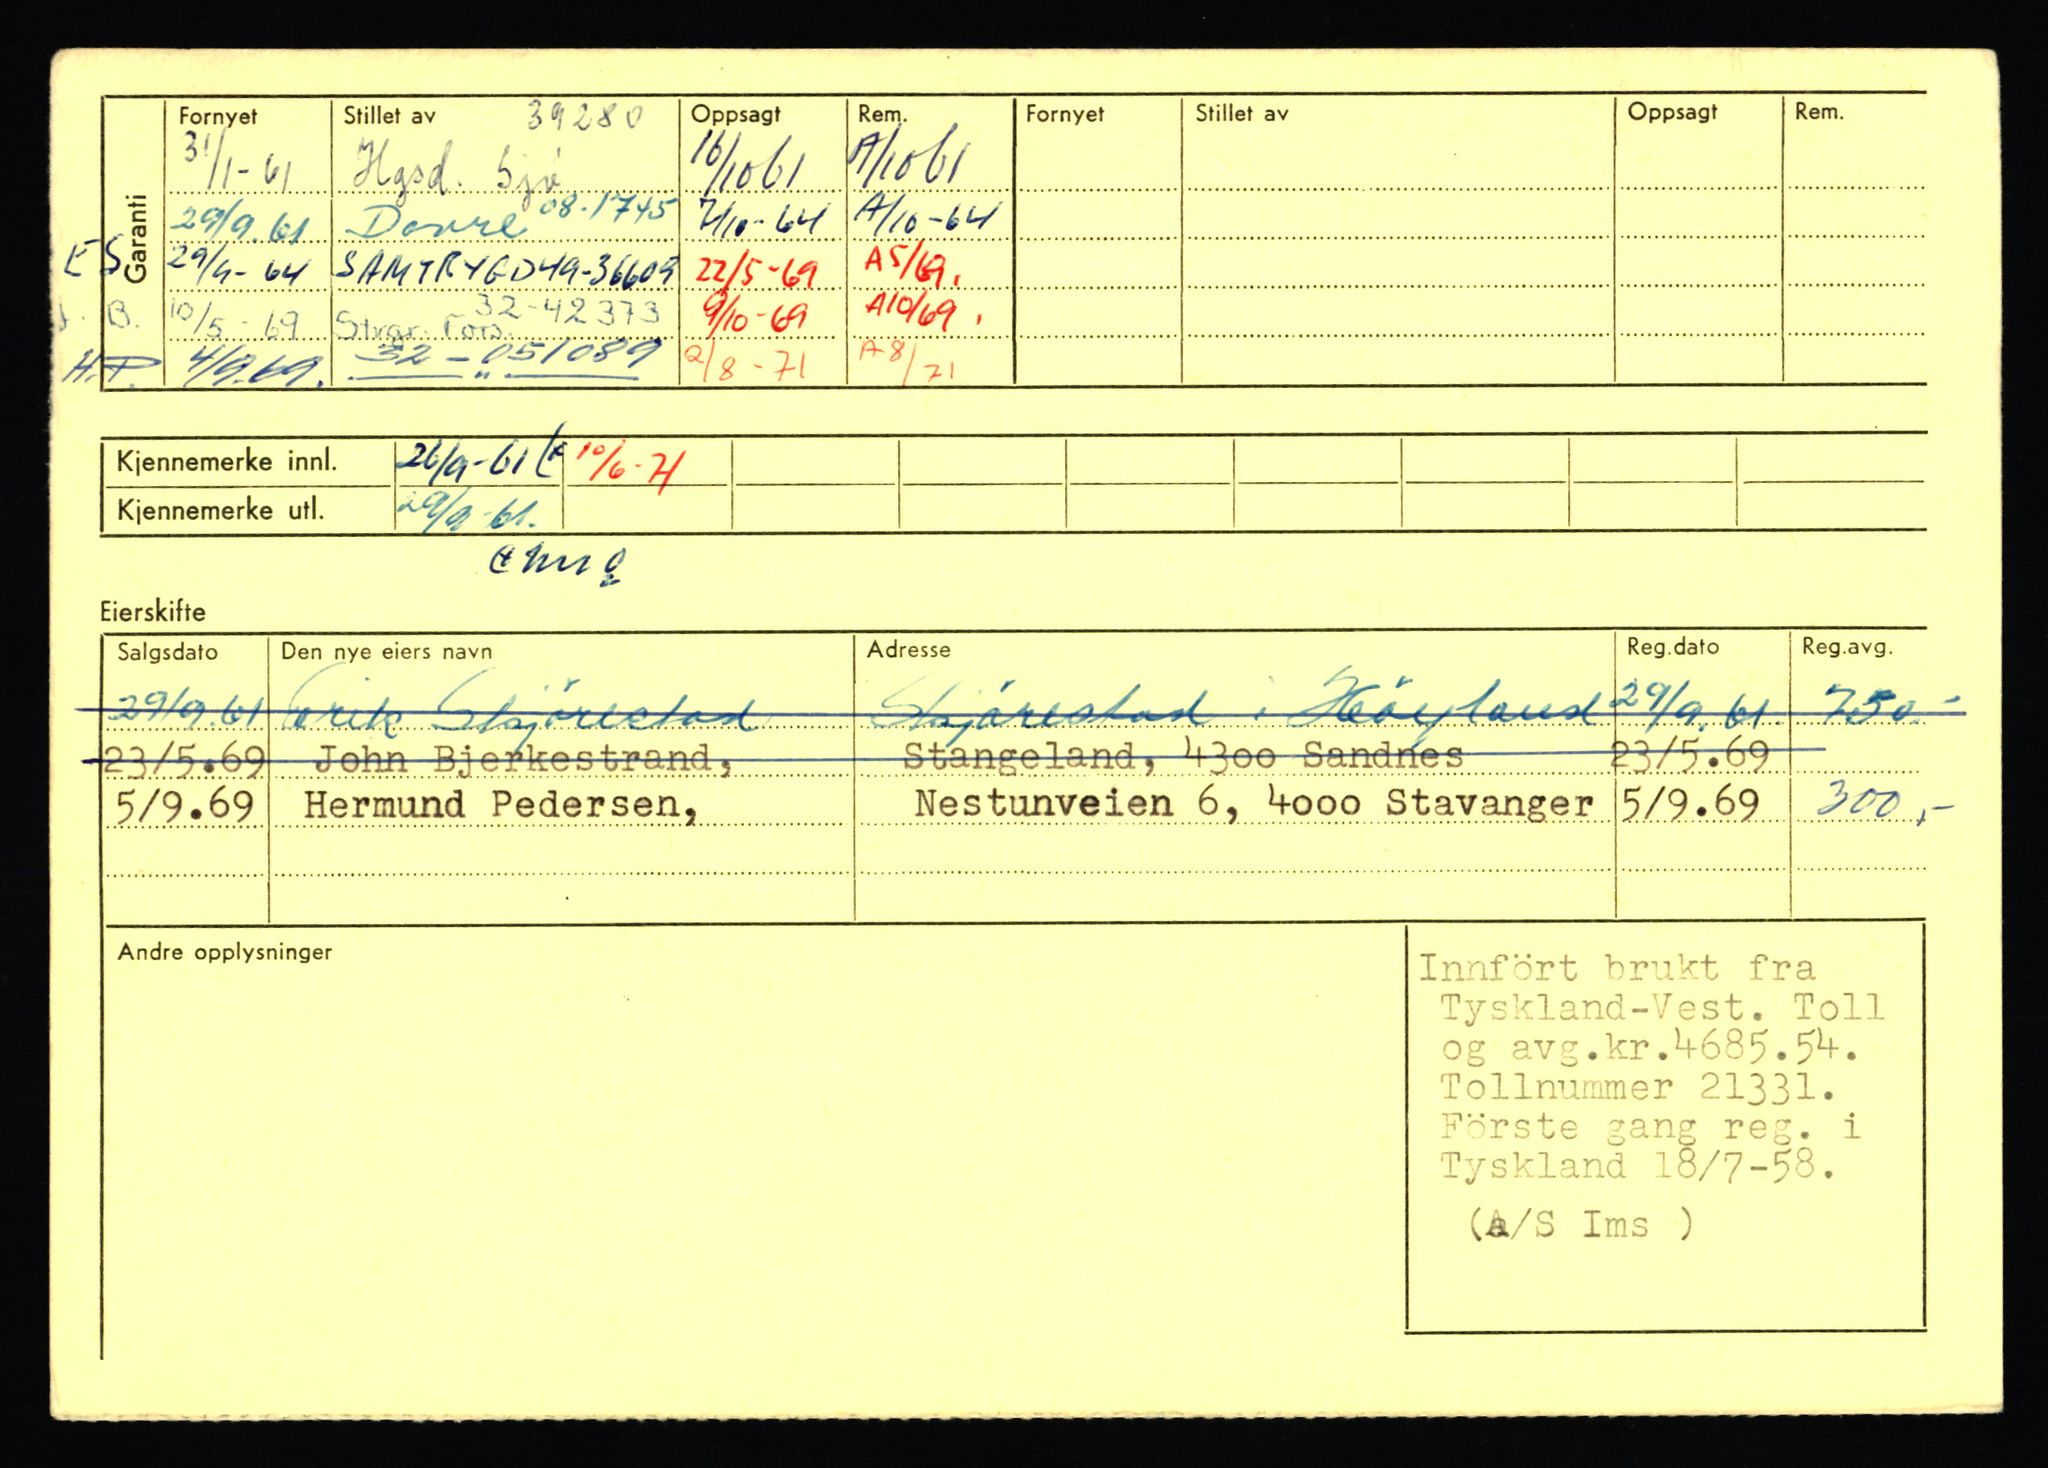 Garanti Fornyet Stillet av 39280 Oppsagt Rem. Fornyet Stillet av Oppsagt Rem.
31/1-61 Hgsd. Sjø 16/10 61 A/10 61
29/9.61 Dovre 08-1745 7/10-64 A/10-64
E S 29/9-64 SAMTRYGD 49-36609 22/5-69 A5/69.
J. B. 10/5-69 Stvgr. Fors. 32-42373 9/10-69 A10/69.
H.P. 4/9.69. 32-051089 2/8-71 A8/71
Kjennemerke innl. 26/9-61 10/6-71
Kjennemerke utl. 29/9-61.
Eierskifte
Salgsdato Den nye eiers navn Adresse Reg.dato Reg.avg.
29/9.61 Erik Skjörestad Skjörestad i Höyland 29/9.61. 750.-
23/5.69 John Bjerkestrand, Stangeland, 4300 Sandnes 23/5.69
5/9.69 Hermund Pedersen, Nestunveien 6, 4000 Stavanger 5/9.69 300,-
Andre opplysninger
Innfört brukt fra
Tyskland-Vest. Toll
og avg.kr.4685.54.
Tollnummer 21331.
Förste gang reg. i
Tyskland 18/7-58.
(A/S Ims )